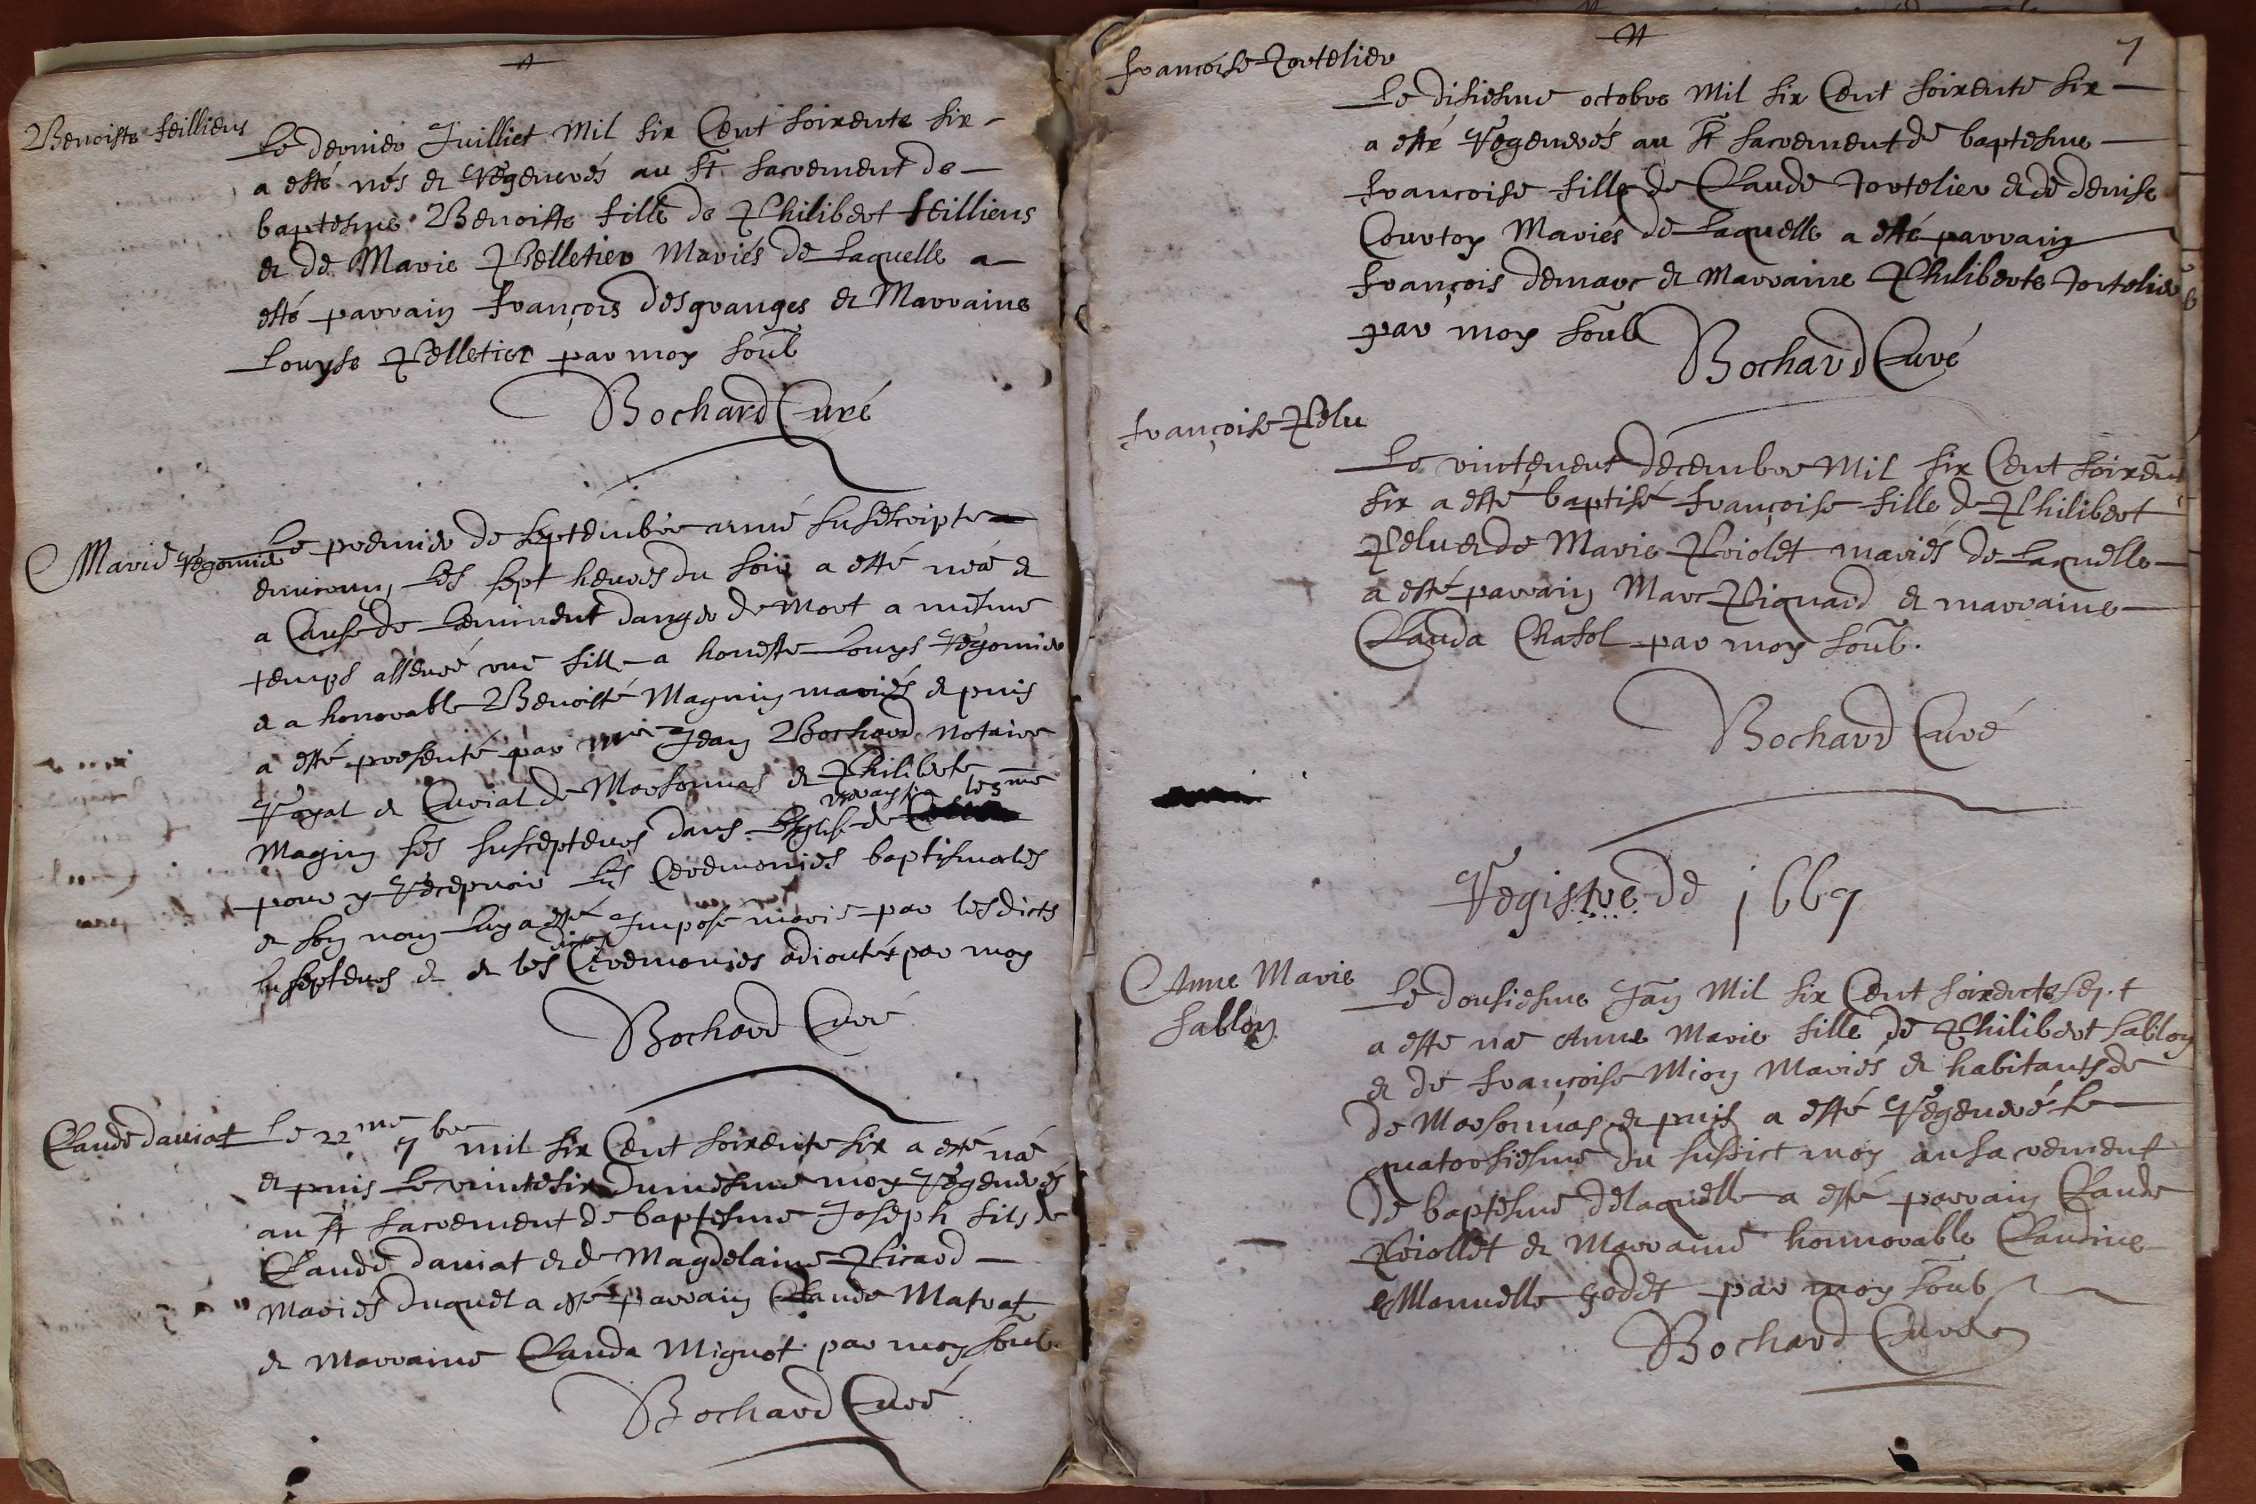 Benoiste feilliens
Le dernier Juilliet Mil six Cent soixente six
a esté nés et Régenerés au St sacrement de
baptesme Benoiste fille de Philibert feilliens
et de Marie Pelletier Mariés de Laquelle a
esté parrain françois desgranges et Marraine
Louyse Pelletier par moy soub
Bochard Curé
Marie Régonnier
Le premier de septembre anné susescripte
environ les sept heures du soir a esté née et
a Cause de Leminent danger de Mort a mesme
temps une fille a honeste Louys Régonnier
et a honorable Benoiste Magnin mariés et puis
a esté presenté par Mre Jean Bochard Notaire
Royal et Curial de Marsonnas et Philiberte
Magnin ses suscepteurs dans Léglise de
le 3me
pour y Récepvoir Les Ceremonies baptismales
et son nom Luy a esté Imposé marie par lesdicts
suscepteurs et et les dites Ceremonies adioutés par moy
Bochard Curé
Claude daviat
Le 22me 7bre mil six Cent soixente six a esté né
et puis Le vintesix du mesme moy Régenerés
au St sacrement de baptesme Joseph fils de
Claude daviat et de Magdelaine Picard
Mariés duquel a esté parrain Claude Matrat
et Marraine Clauda Mignot par moy soub
Bochard Curé
7
françoise Tortelier
Le disiesme octobre Mil six Cent soixente six
a esté Régenerés au St sacrement de baptesme
francoise fille de Claude Tortelier et de denise
Courtoy Mariés de Laquelle a esté parrain
françois demarc et Marraine Philiberte Tortelier
par moy soub
Bochard Curé
françoise Pelu
Le decembre Mil six Cent soixent
six a esté baptisé françoise fille de Philibert
Pelu et de Marie Priolet mariés de Laquelle
a esté parrain Marc Piquard et marraine
Clauda Chasol par moy soub.
Bochard Curé
Registre de 1667
Anne Marie
Sablon
Le dousiesme Jan Mil six Cent soixente sept
a este née Anne Marie fille de Philibert Sablon
et de françoise Mion Mariés et habitants de
de Marsonnas et puis a esté Régeneré Le
quatorsiesme du susdict moy au sacrement
de baptesme delaquelle a esté parrain Claude
Priollet et Marraine honnorable Claudine
Emanuelle godet par moy soub
Bochard Curé